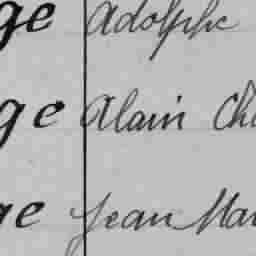 ge Adolphe
ge Alain Ch
ge Jean Mar